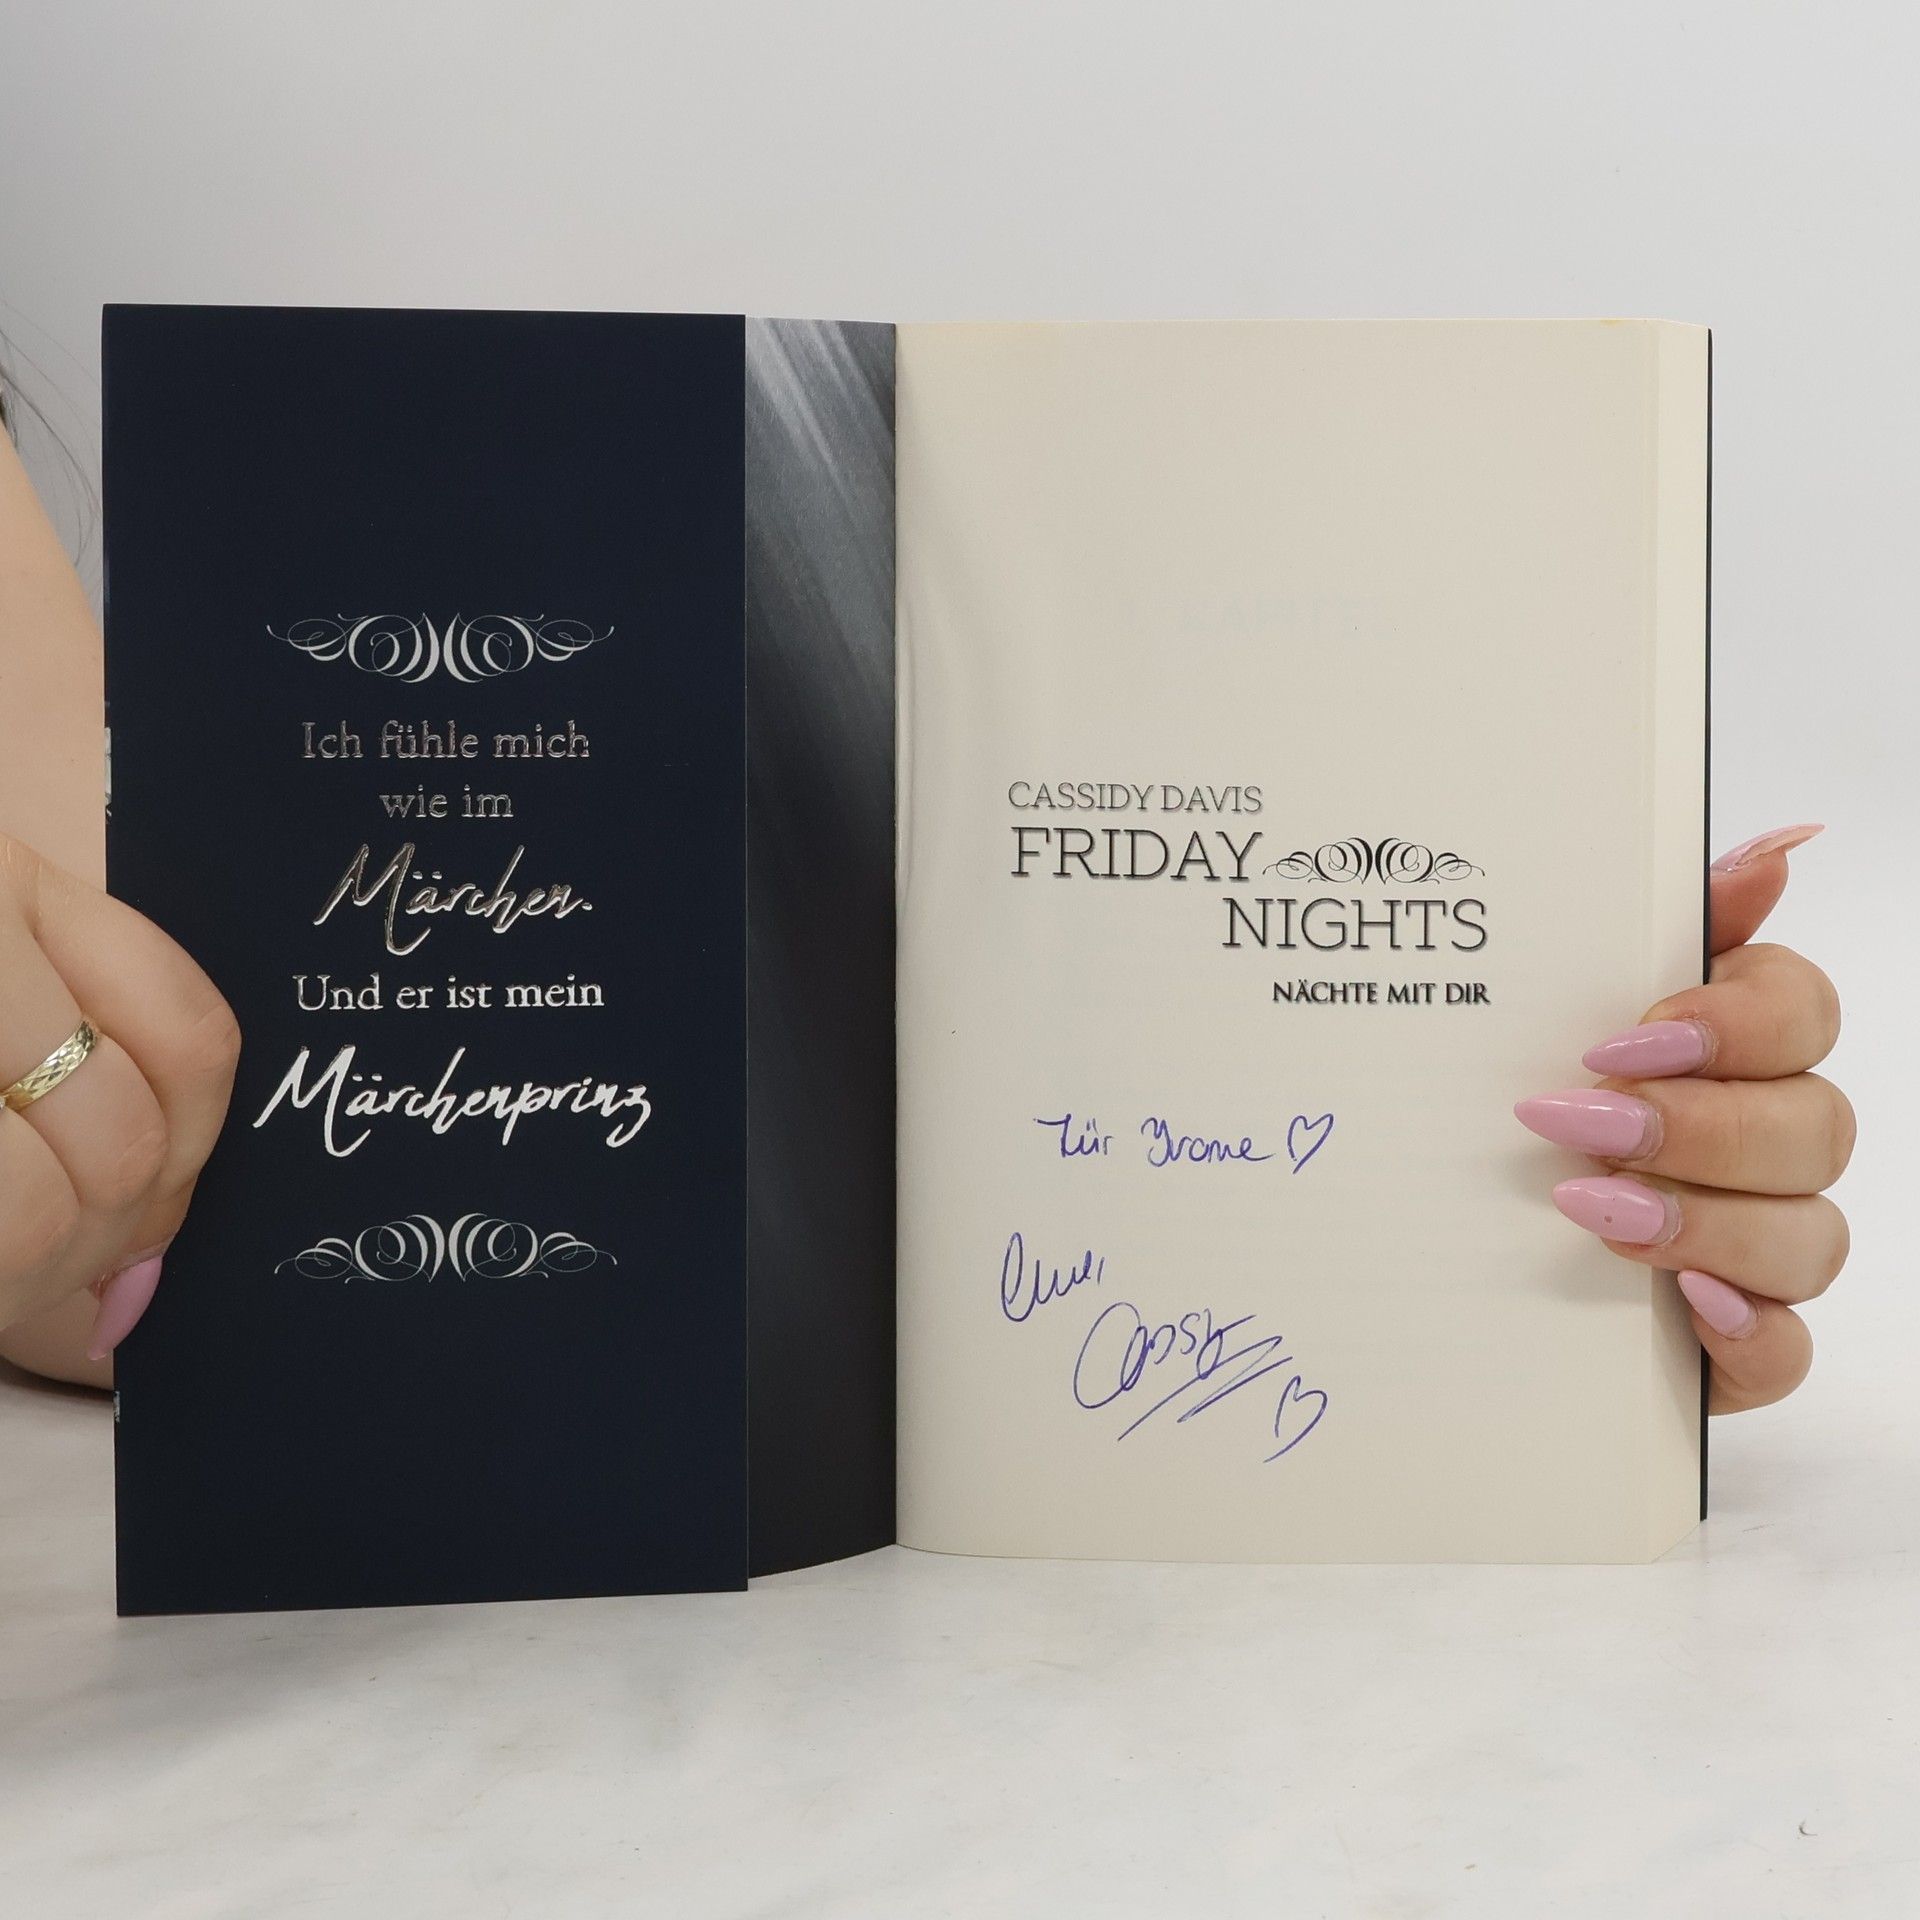 Ich fühle mich
wie im
Märchen.
Und er ist mein
Märchenprinz
CASSIDY DAVIS
FRIDAY
NIGHTS
NÄCHTE MIT DIR
Für Yvonne